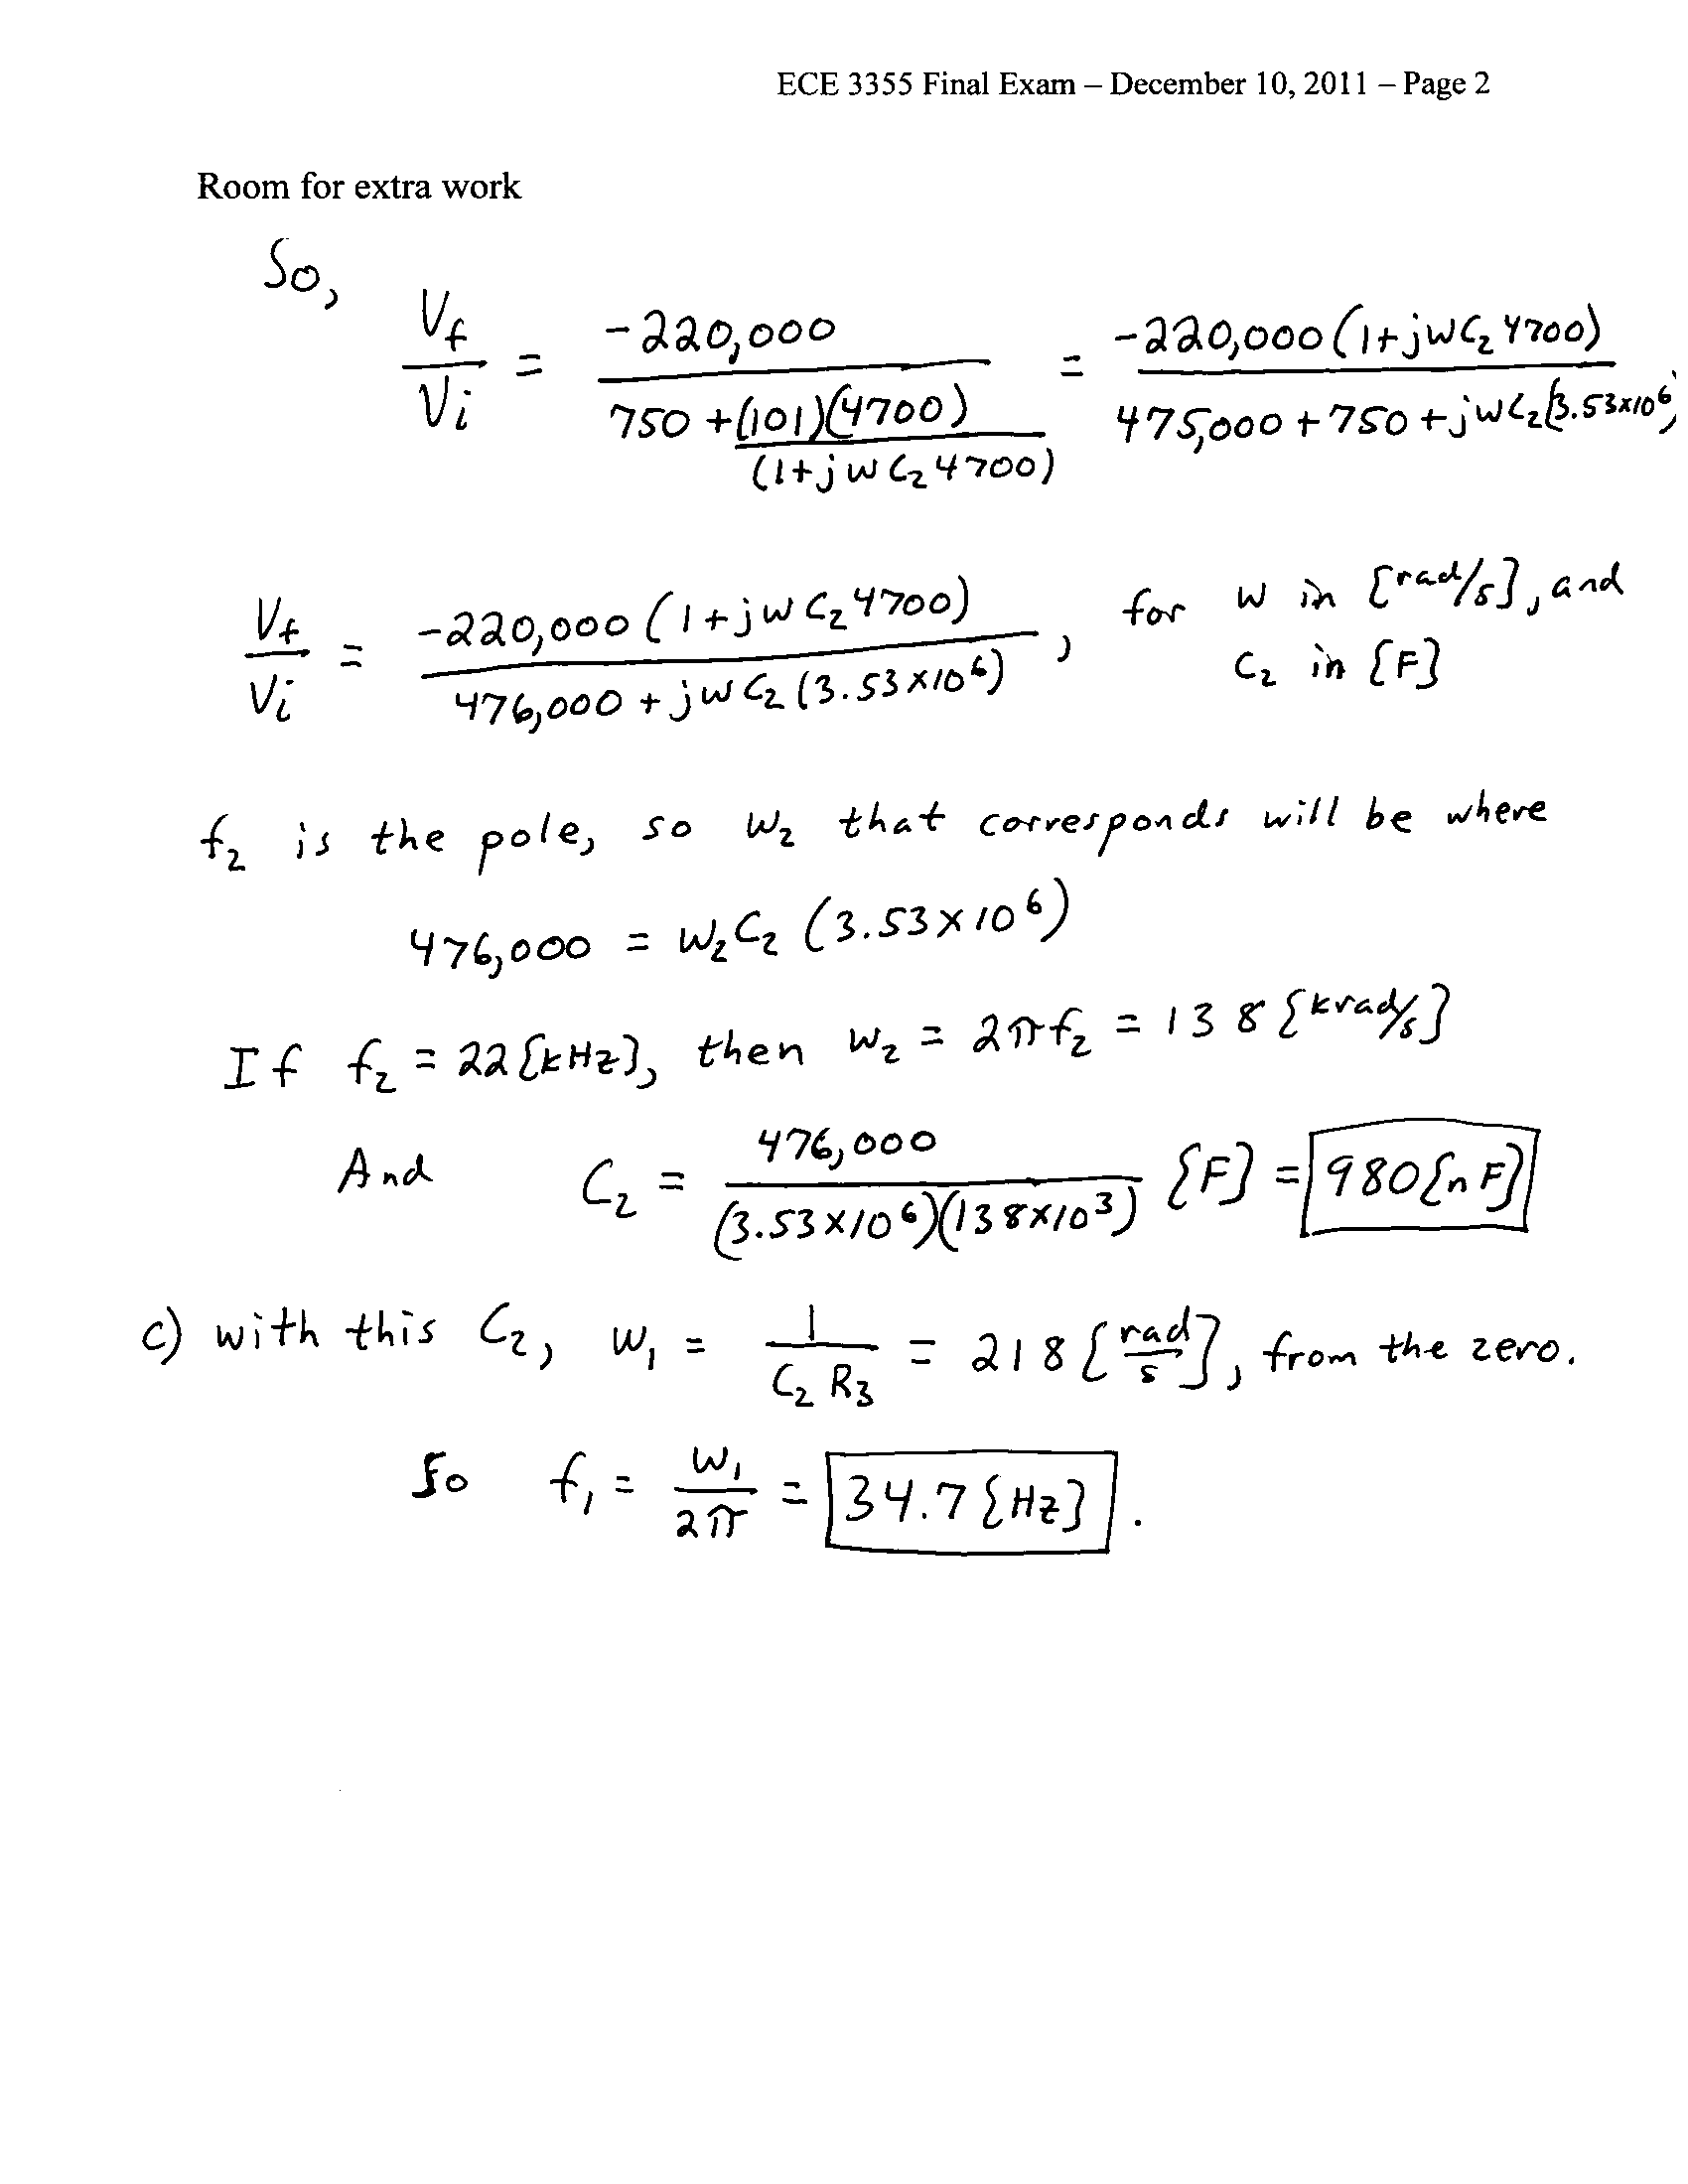 ECE 3355 Final Exam – December 10, 2011 – Page 2
Room for extra work
So,
Vf/Vi = -220,000 / (750 + (101)(4700)/(1+jωC₂4700)) = -220,000(1+jωC₂4700) / (475,000+750+jωC₂(3.53x10⁶)
Vf/Vi = -220,000(1+jωC₂4700) / (476,000+jωC₂(3.53x10⁶)), for ω in {rad/s}, and
C₂ in {F}
f₂ is the pole, so ω₂ that corresponds will be where
476,000 = ω₂C₂(3.53x10⁶)
If f₂ = 22{kHz}, then ω₂ = 2πf₂ = 138{krad/s}
And C₂ = 476,000 / (3.53x10⁶)(138x10³) {F} = 980{nF}
c) with this C₂, ω₁ = 1 / C₂R₃ = 218{rad/s}, from the zero.
So f₁ = ω₁/2π = 34.7{Hz}.